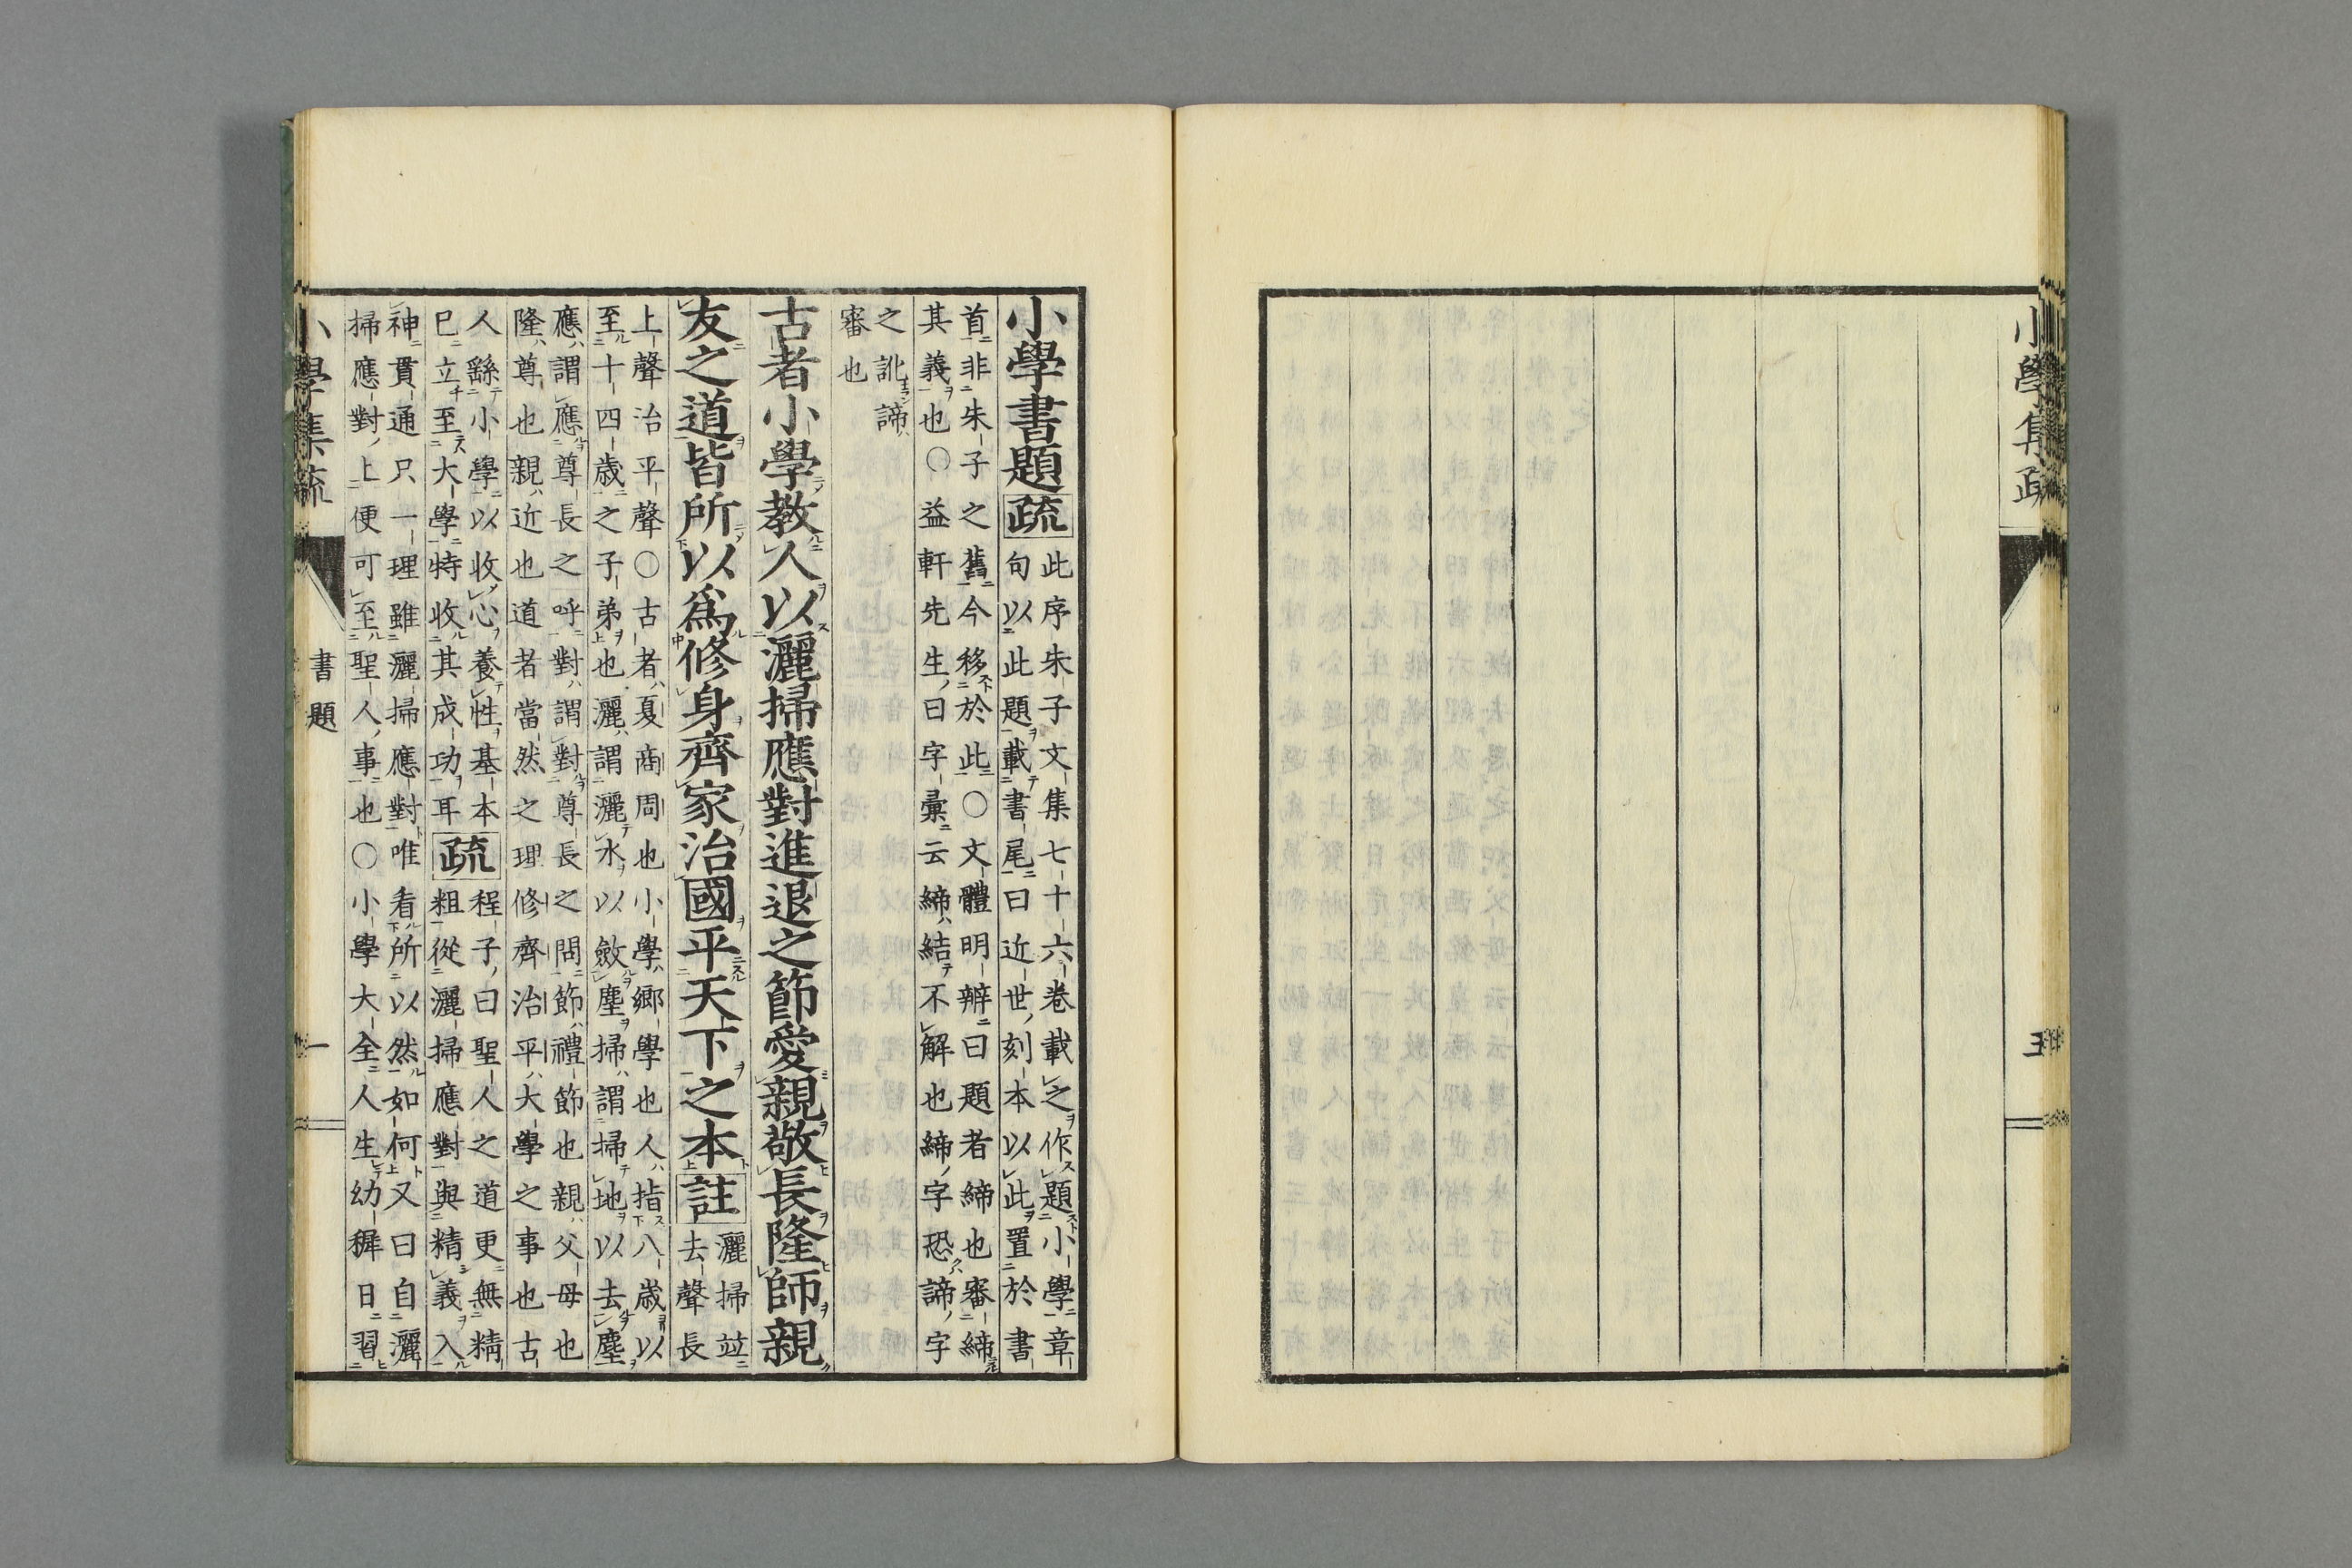 小學集疏
小學書題疏
此序朱子文集七十六卷載之作題小學章
句以此題載書尾曰近世刻本以此置於書
首非朱子之舊今移於此〇文體明辨曰題者締也審締
其義也〇益軒先生曰字彙云締結不解也締字恐諦字
之訛諦
審也
古者小學教人以灑掃應對進退之節愛親敬長隆師親
友之道皆所以爲修身齊家治國平天下之本註
灑掃竝
去聲長
上聲治平聲〇古者夏商周也小學鄉學也人指八歲以
至十四歲之子弟也灑謂灑水以斂塵掃謂掃地以去塵
應謂應尊長之呼對謂對尊長之問節禮節也親父母也
隆尊也親近也道者當然之理修齊治平大學之事也古
人繇小學以收心養性基本
巳立至大學特收其成功耳
疏
程子曰聖人之道更無精
粗從灑掃應對與精義入
神貫通只一理雖灑掃應對唯看所以然如何又曰自灑
掃應對上便可至聖人事也〇小學大全人生幼穉日習
小學集疏 書題 一